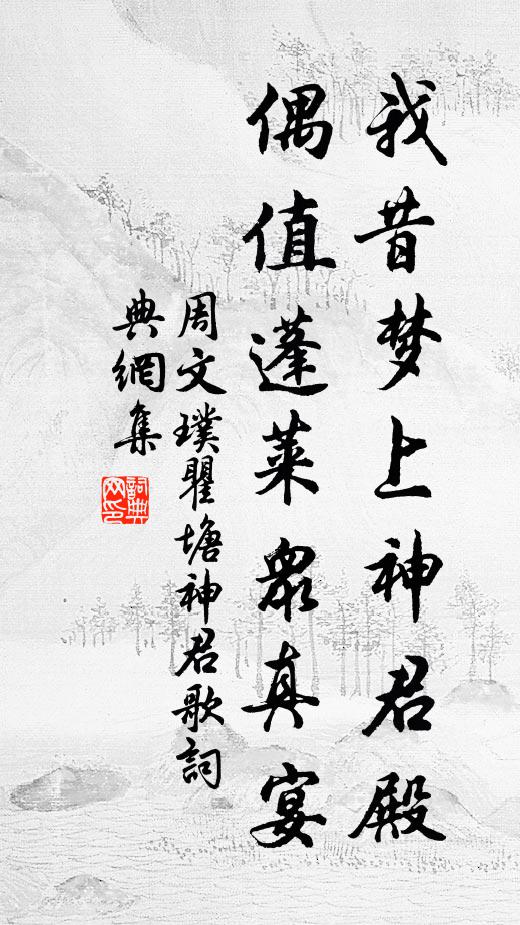 我昔梦上神君殿
偶值蓬莱眾真宴
周文璞瞿塘神君歌詞
典網集
詞典网印